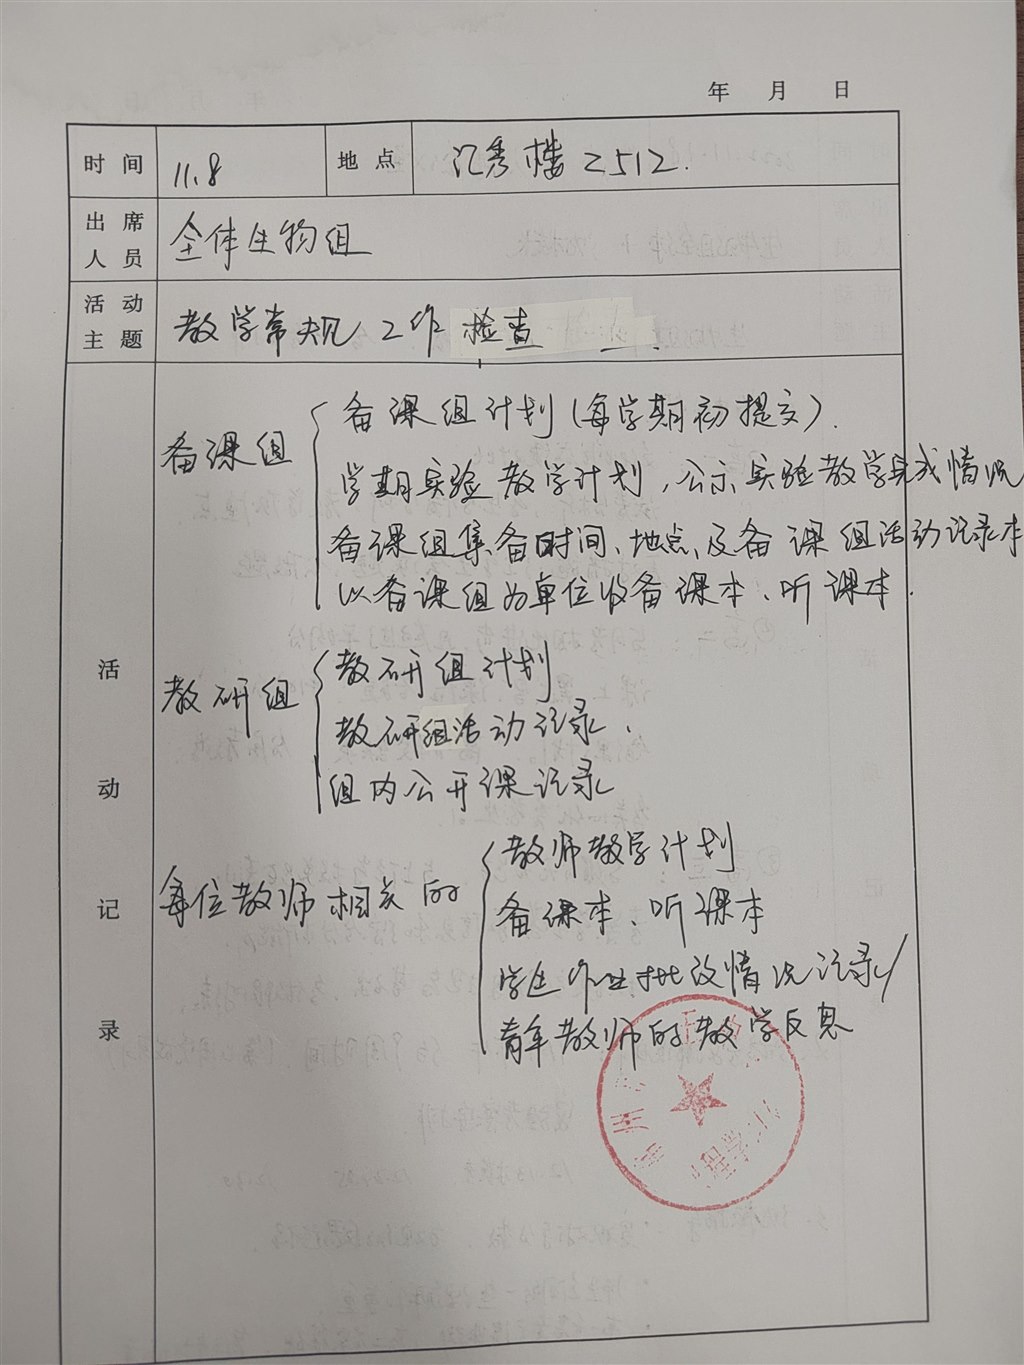 年 月 日
时间 11.8 地点 汇秀楼2512.
出席人员 全体生物组
活动主题 教学常规工作检查
活动记录
备课组
备课组计划(每学期初提交).
学期实验教学计划,公示实验教学完成情况
备课组集备时间、地点、及备课组活动记录本
以备课组为单位收备课本、听课本.
教研组
教研组计划
教研组活动记录.
组内公开课记录
每位教师相关的
教师教学计划
备课本、听课本
学生作业批改情况记录
青年教师的教学反思
州